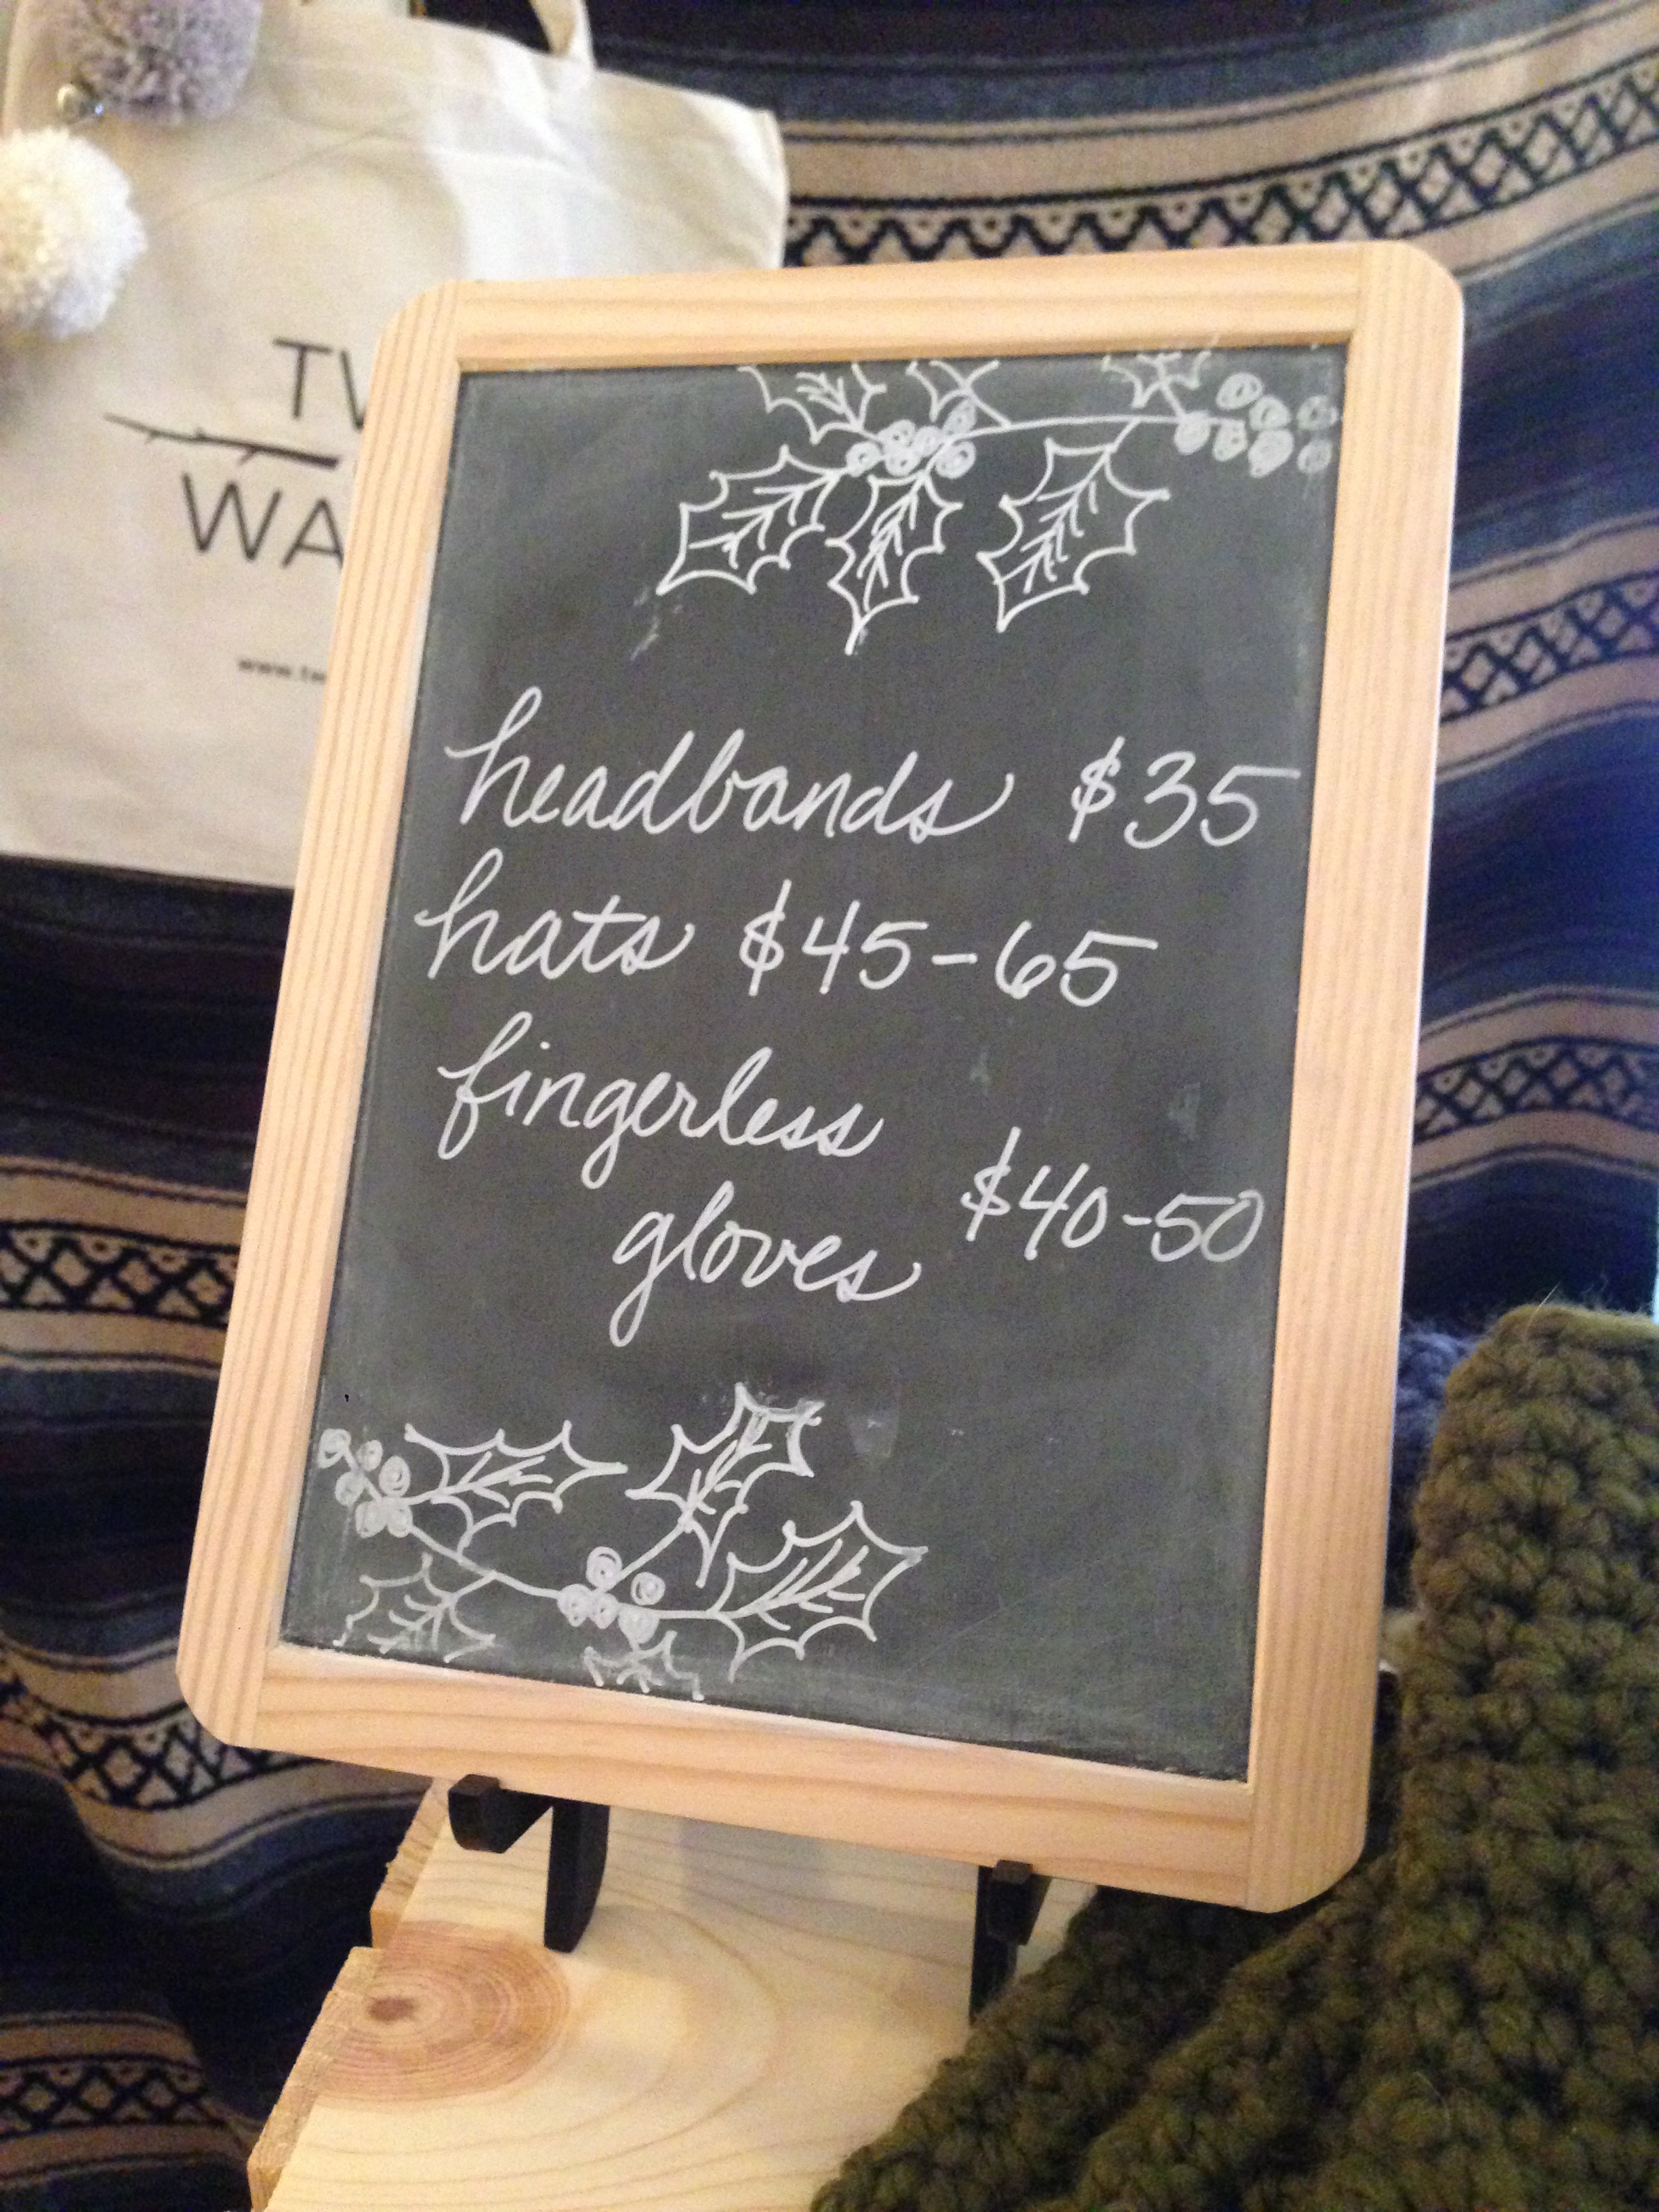 headbands $35
hats $45-65
fingerless
gloves $40-50